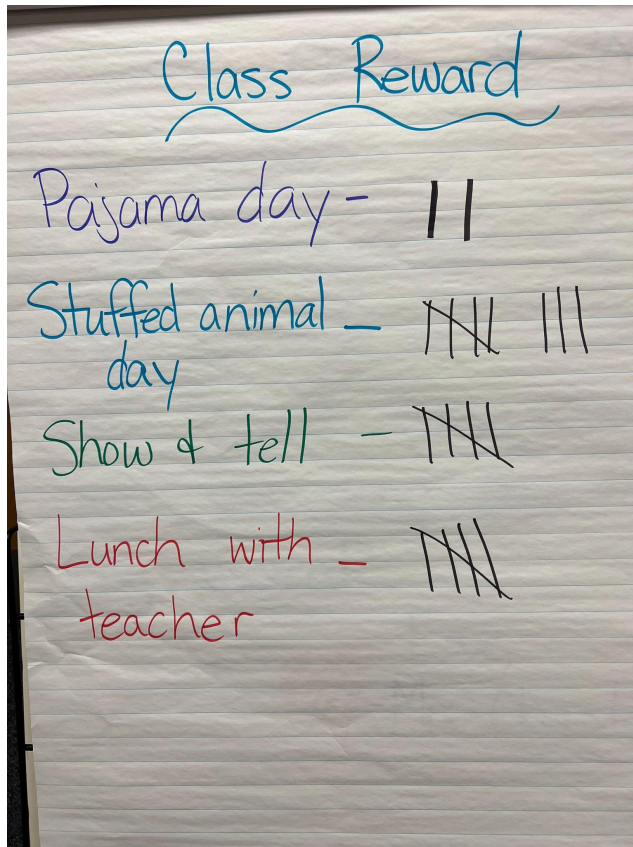 Class Reward
Pajama day -
Stuffed animal -
day
Show & tell -
Lunch with -
teacher